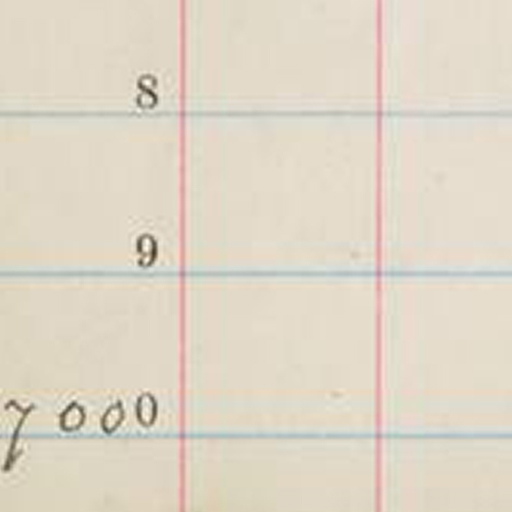 8
9
7000